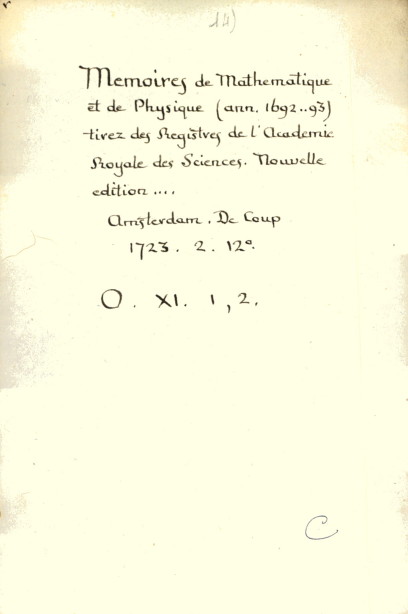 14)
Memoires de Mathematique
et de Physique (ann. 1692..93)
tirez des Registres de l'Academie
Royale des Sciences. Nouvelle
edition ....
Amsterdam. De Coup
1723. 2. 12°.
O. XI. 1, 2.
C